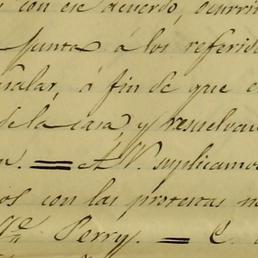 con ese acuerdo, ocurrir
junta á los referido
señalar, á fin de que e
de la casa, y resuelvan
= A V. suplicamos
con las protestas n
Perry. = C.